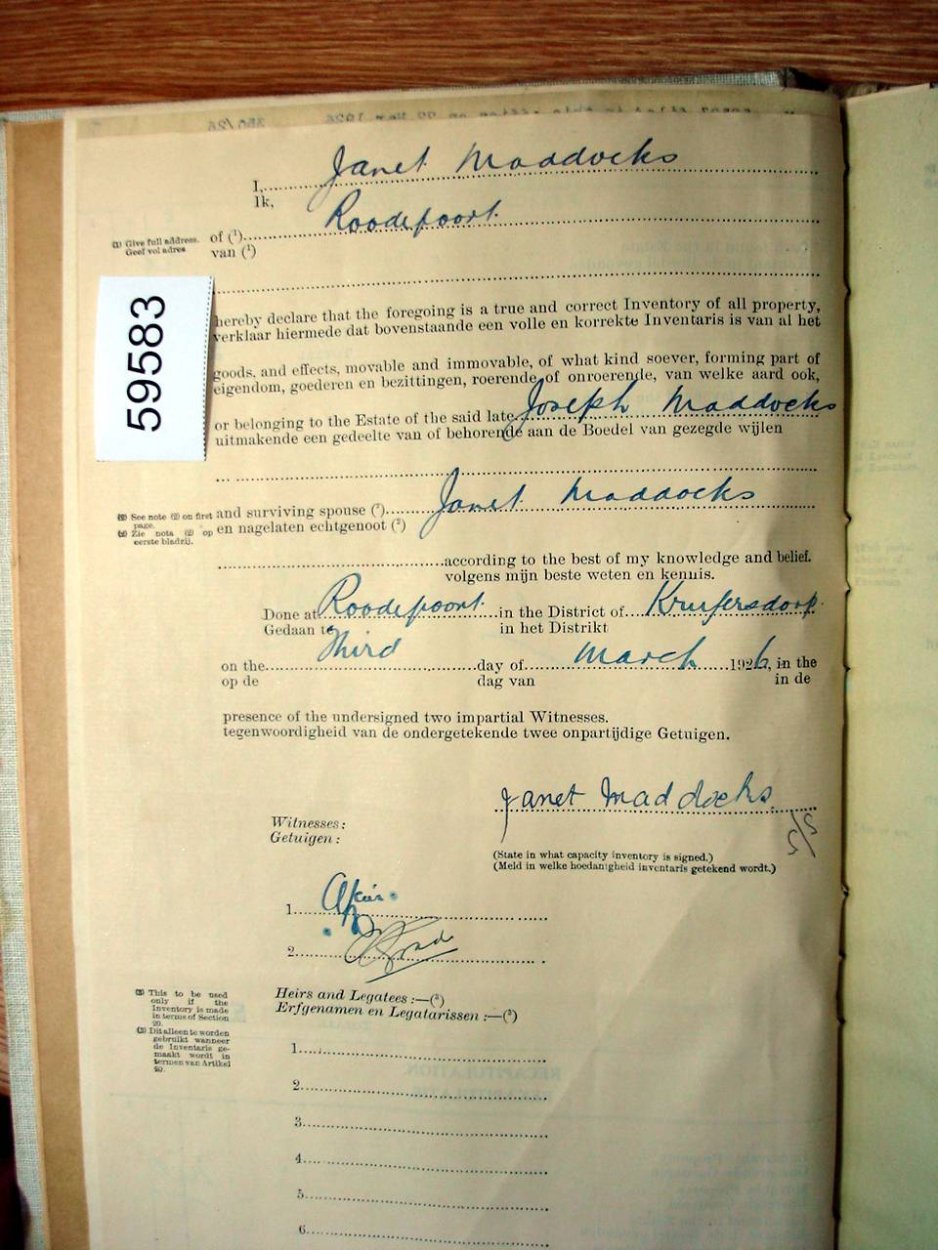 I, Janet Maddocks
Ik,
of (¹) Roodepoort
van (¹)
(1) Give full address.
Geef vol adres
59583
hereby declare that the foregoing is a true and correct Inventory of all property,
verklaar hiermede dat bovenstaande een volle en korrekte Inventaris is van al het
goods, and effects, movable and immovable, of what kind soever, forming part of
eigendom, goederen en bezittingen, roerende of onroerende, van welke aard ook,
or belonging to the Estate of the said late Joseph Maddocks
uitmakende een gedeelte van of behorende aan de Boedel van gezegde wijlen
(2) See note (2) on first
page.
(2) Zie nota (2) op
eerste bladzij.
and surviving spouse (²) Janet Maddocks
en nagelaten echtgenoot (²)
according to the best of my knowledge and belief.
volgens mijn beste weten en kennis.
Done at Roodepoort in the District of Krugersdorp
Gedaan te in het Distrikt
on the Third day of March 1926, in the
op de dag van in de
presence of the undersigned two impartial Witnesses.
tegenwoordigheid van de ondergetekende twee onpartijdige Getuigen.
Janet Maddocks
Witnesses:
Getuigen:
(State in what capacity inventory is signed.)
(Meld in welke hoedanigheid inventaris getekend wordt.)
1.
2.
(3) This to be used
only if the
Inventory is made
in terms of Section
20.
(3) Dit alleen te worden
gebruikt wanneer
de Inventaris ge-
maakt wordt in
termen van Artikel
20.
Heirs and Legatees:—(³)
Erfgenamen en Legatarissen:—(³)
1.
2.
3.
4.
5.
6.